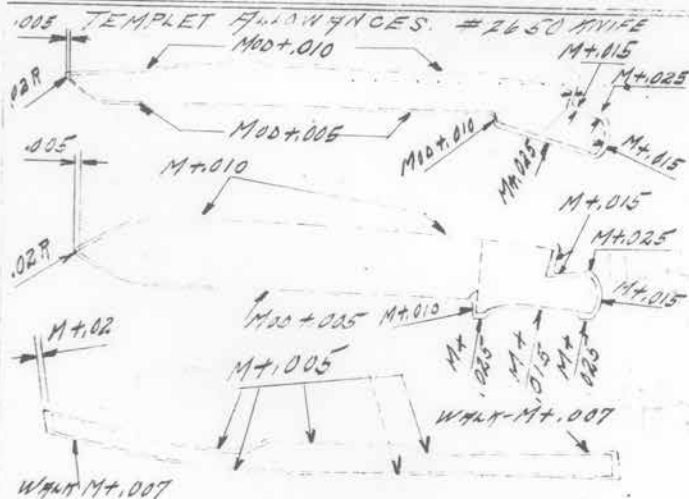 TEMPLET ALLOWANCES. #2650 KNIFE
.005
MOD+.010
M+.015
M+.025
.02R
MOD+.005
MOD+.010
M+.025
M+.015
.005
M+.010
M+.015
M+.025
.02R
MOD+.005
M+.010
M+.015
M+
.025
M+
.015
M+
.025
M+.02
M+.005
WALK-M+.007
WALK M+.007